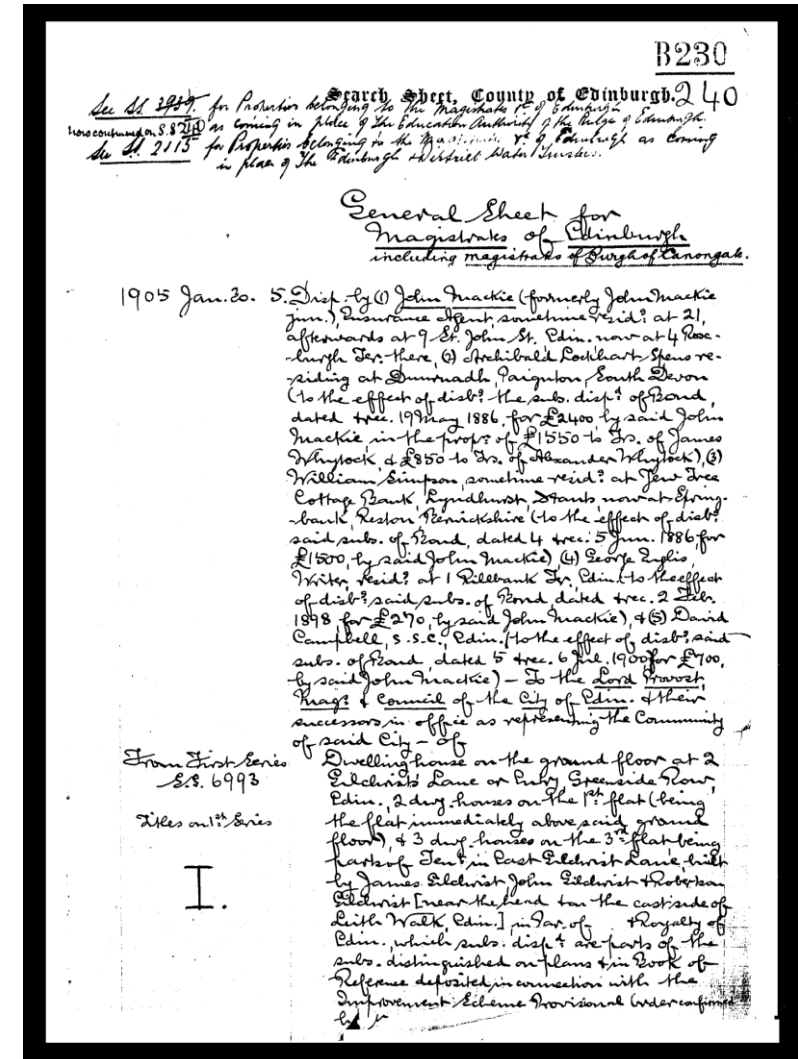 B230
Search Sheet, County of Edinburgh. 240
See SS 3939. for Properties belonging to the Magistrates &c of Edinburgh
now continued on S.S. as coming in place of The Education Authority of the Burgh of Edinburgh.
See SS. 2115 for Properties belonging to the Magistrates &c. of Edinburgh as coming
in place of The Edinburgh & District Water Trustees.
General Sheet for
Magistrates of Edinburgh
including magistrates of Burgh of Canongate.
1905 Jan. 20. 5. Disp. by (1) John Mackie (formerly John Mackie
jun.), Insurance Agent, sometime resid? at 21,
afterwards at 9 St. John St. Edin. now at 4 Rox-
-burgh Ter. there, (2) Archibald Lockhart Spens re-
-siding at Paignton, South Devon
(to the effect of disb? the subs. disp? of Bond,
dated & rec. 19 May 1886, for £2400 by said John
Mackie, in the prop? of £1550 to Trs. of James
Whytock, & £850 to Trs. of Alexander Whytock), (3)
William Simpson, sometime resid? at Yew Tree
Cottage Bank, Lyndhurst, Hants now at Spring-
-bank, Reston, Berwickshire (to the effect of disb?
said subs. of Bond, dated 4 & rec. 5 Jun. 1886, for
£1500, by said John Mackie) (4) George Inglis,
Writer, resid? at 1 Rillbank Ter, Edin. (to the effect
of disb? said subs. of Bond dated & rec. 2 Feb.
1898 for £270, by said John Mackie), & (5) David
Campbell, S.S.C., Edin. (to the effect of disb? said
subs. of Bond, dated 5 & rec. 6 Jul. 1900 for £700,
by said John Mackie) – To the Lord Provost,
Mag? & Council of the City of Edin. & their
successors in office as representing the Community
of said City – of
From First Series Dwelling house on the ground floor at 2
S.S. 6993 Gilchrist's Lane or Entry, Greenside Row,
Edin., 2 dwg. houses on the 1st flat (being
Titles on 1st Series the flat immediately above said ground
floor), & 3 dwg. houses on the 3rd flat being
parts of Ten? in East Gilchrist Lane, built
I. by James Gilchrist, John Gilchrist & Robertson
Gilchrist [near the head & on the east side of
Leith Walk, Edin.] in Par. of & Royalty of
Edin., which subs. disp? are parts of the
subs. distinguished on plans & in Book of
Reference deposited in connection with the
Improvement Scheme Provisional Order confirmed
by